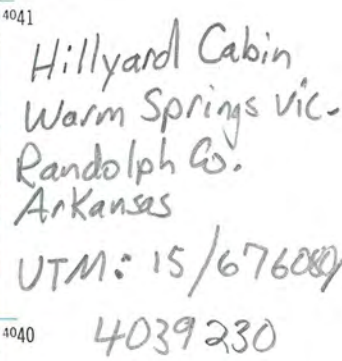 4041
Hillyard Cabin
Warm Springs vic.
Randolph Co.
Arkansas
UTM: 15/676080/
4040 4039230